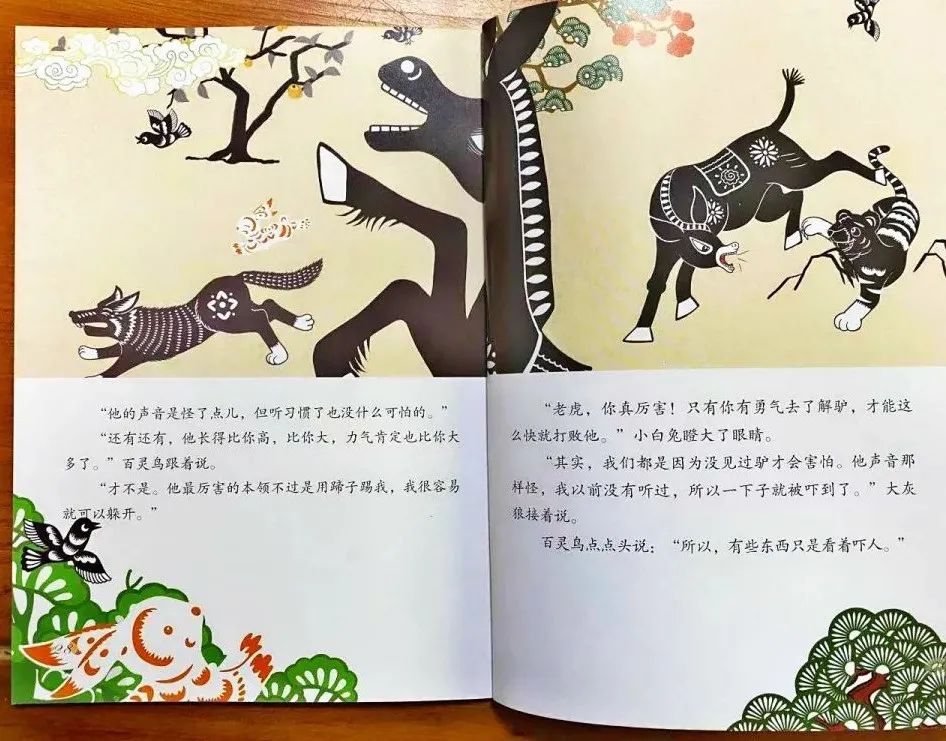 “他的声音是怪了点儿，但听习惯了也没什么可怕的。”
“还有还有，他长得比你高，比你大，力气肯定也比你大
多了。”百灵鸟跟着说。
“才不是。他最厉害的本领不过是用蹄子踢我，我很容易
就可以躲开。”
“老虎，你真厉害！只有你有勇气去了解驴，才能这
么快就打败他。”小白兔瞪大了眼睛。
“其实，我们都是因为没见过驴才会害怕。他声音那
样怪，我以前没有听过，所以一下子就被吓到了。”大灰
狼接着说。
百灵鸟点点头说：“所以，有些东西只是看着吓人。”